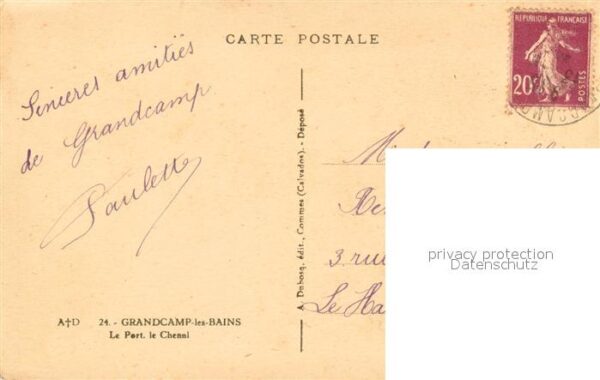 CARTE POSTALE
REPUBLIQUE FRANÇAISE
20c
POSTES
Sincères amitiés
de Grandcamp
Paulette
A. Dubosq, édit., Commes (Calvados). - Déposé
3 rue
Le Ha
privacy protection
Datenschutz
A†D 24. - GRANDCAMP-les-BAINS
Le Port, le Chenal